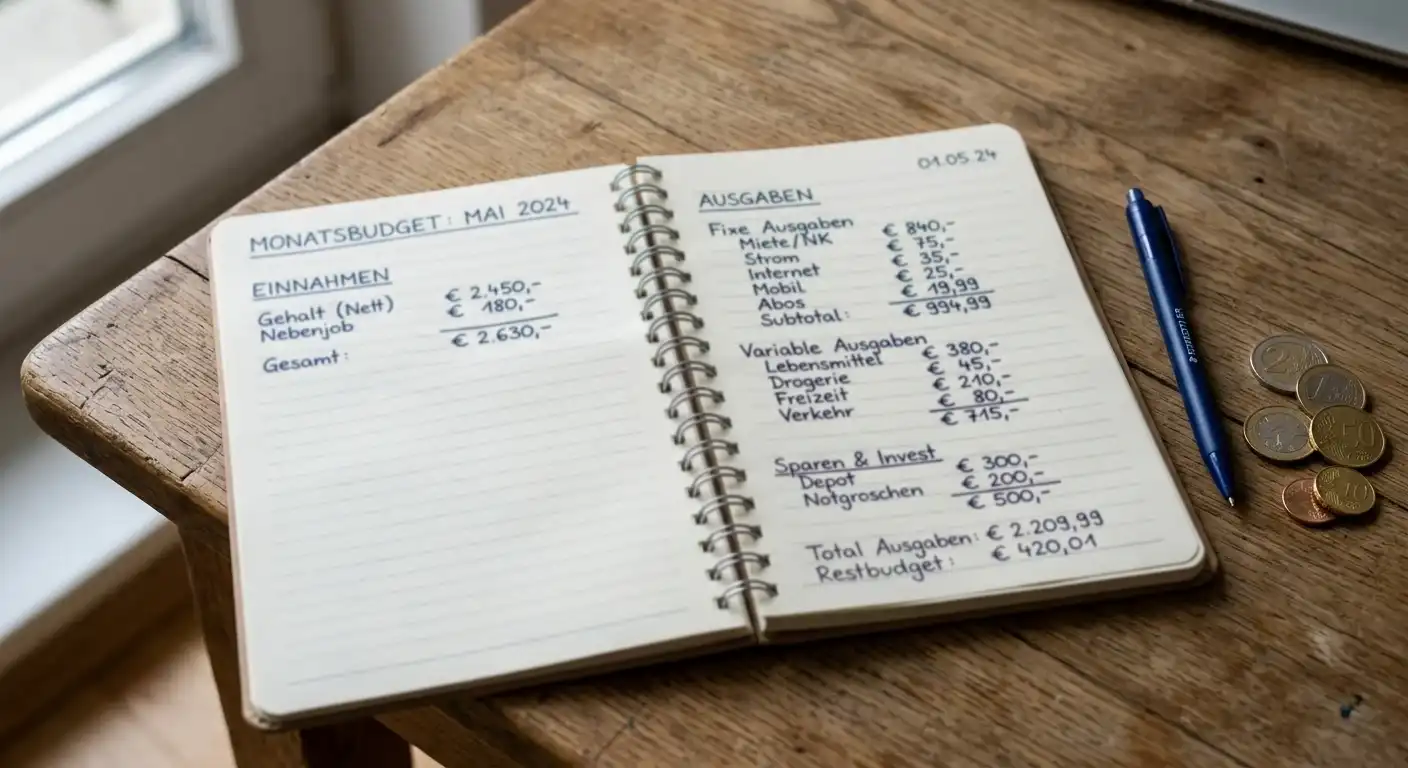 MONATSBUDGET: MAI 2024
EINNAHMEN
Gehalt (Nett) € 2.450,-
Nebenjob € 180,-
Gesamt: € 2.630,-
01.05.24
AUSGABEN
Fixe Ausgaben
Miete/NK € 840,-
Strom € 75,-
Internet € 35,-
Mobil € 25,-
Abos € 19,99
Subtotal: € 994,99
Variable Ausgaben
Lebensmittel € 380,-
Drogerie € 45,-
Freizeit € 210,-
Verkehr € 80,-
€ 715,-
Sparen & Invest
Depot € 300,-
Notgroschen € 200,-
€ 500,-
Total Ausgaben: € 2.209,99
Restbudget: € 420,01
STAEDTLER
2
1
50
10